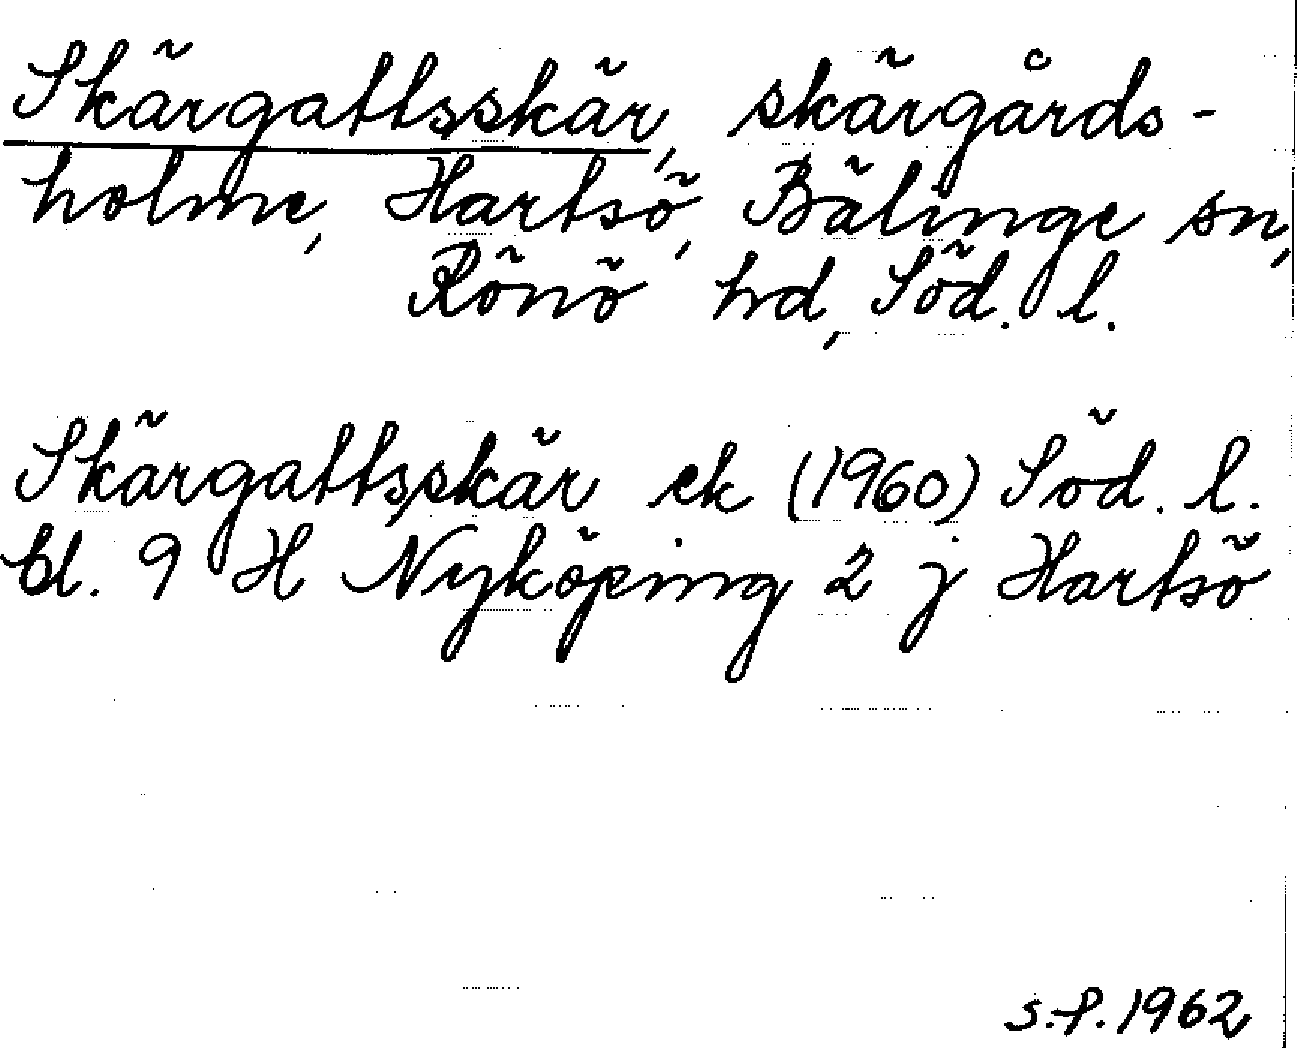 Skärgattsskär, skärgårds-
holme, Hartsö, Bälinge sn,
Rönö hd, Söd. l.
Skärgattsskär ek (1960) Söd. l.
bl. 9 H Nyköping 2 j Hartsö
S.-P. 1962